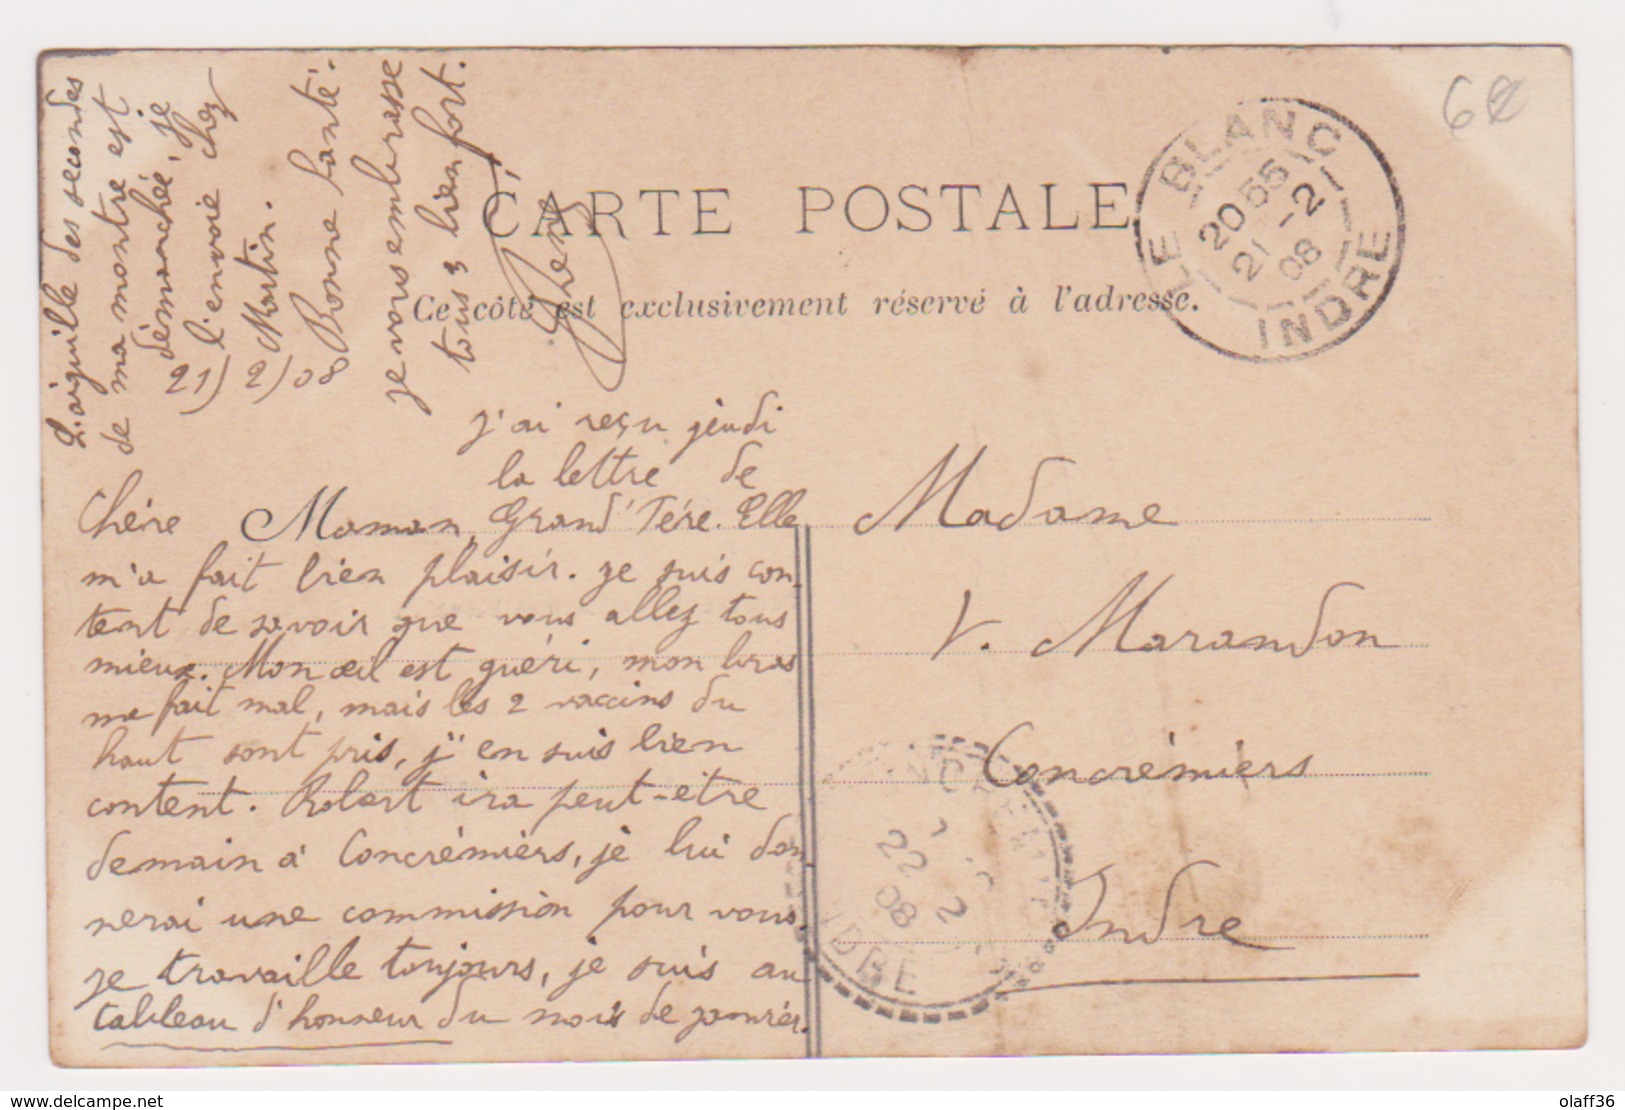 CARTE POSTALE
Ce côté est exclusivement réservé à l'adresse.
LE BLANC
20 55
21 -2
08
INDRE
6€
21/2/08
j'ai reçu jeudi
la lettre de
Chère Maman, Grand'Père. Elle
m'a fait bien plaisir. Je suis con-
tent de savoir que vous allez tous
mieux. Mon œil est guéri, mon bras
me fait mal, mais les 2 vaccins du
haut sont pris, j'en suis bien
content. Robert ira peut-etre
demain à Concrémiers, je lui don-
nerai une commission pour vous.
Je travaille toujours, je suis au
tableau d'honneur du mois de janvier.
L'aiguille des secondes
de ma montre est
démanchée, je
l'envoie chez
Martin.
Bonne Santé.
je vous embrasse
tous 3 bien fort.
René
Madame
V. Marandon
Concrémiers
Indre
22
2
08
INDRE
www.delcampe.net
olaff36